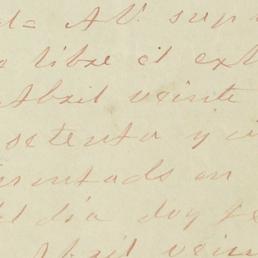 d= AV. sup
libre él ext
Abril veinte
setenta y ci
sentado en
el día doy fe
Abril vein